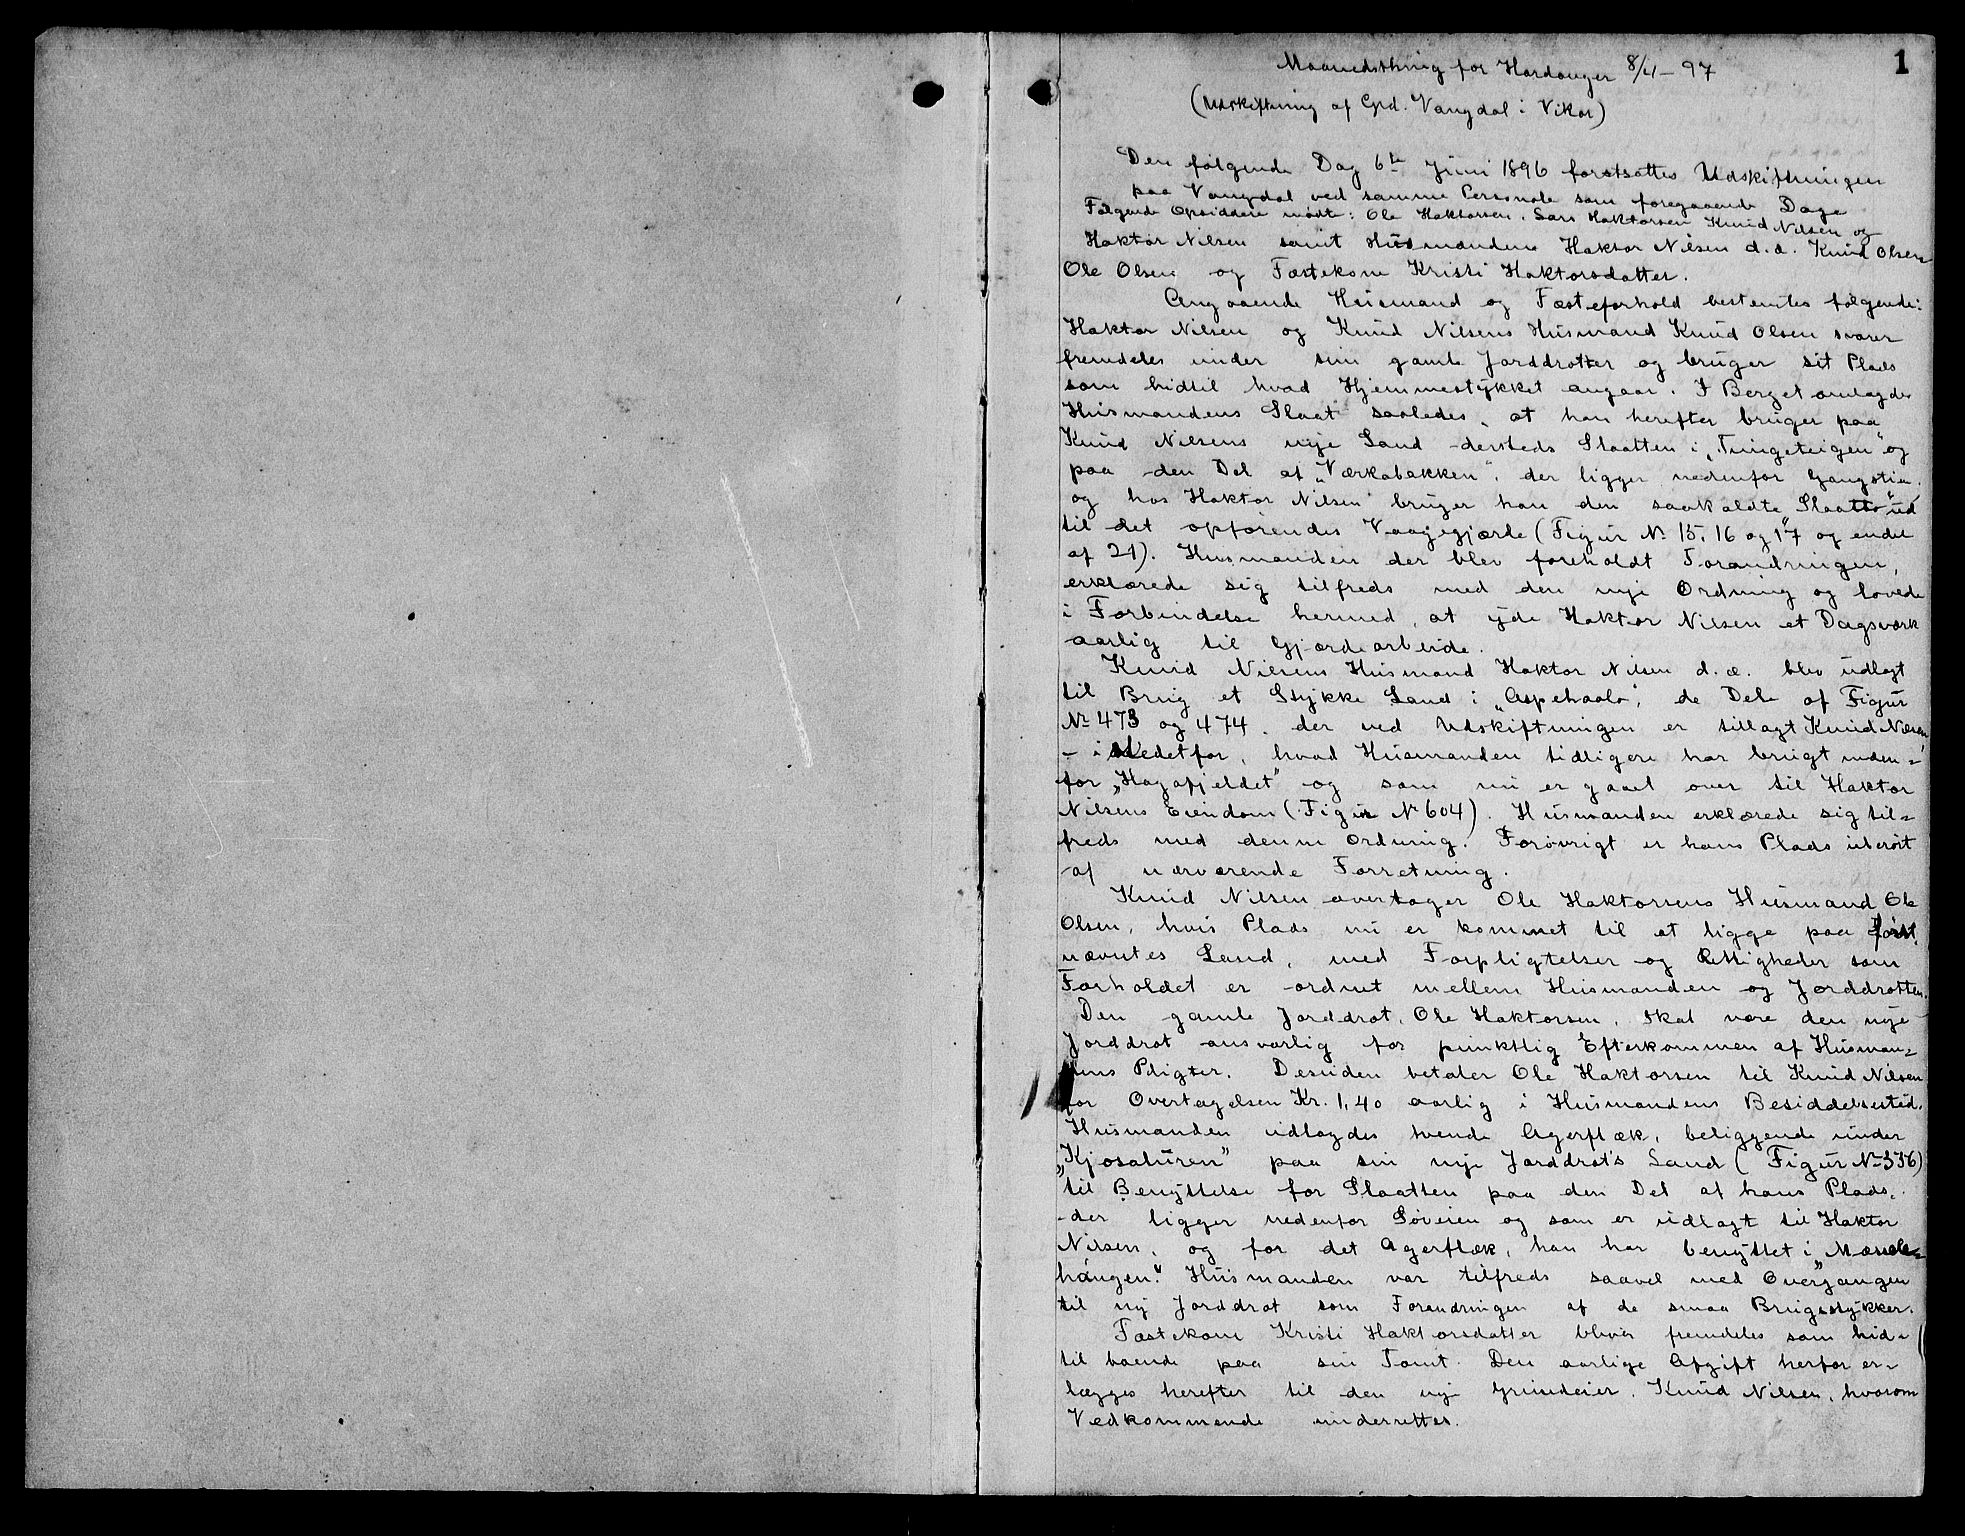 1
Maanedsthing for Hardanger 8/4 - 97
(Udskiftning af Grd. Vangdal i Vikør)
Den følgende Dag 6te Juni 1896 fortsattes Udskiftningen
paa Vangdal ved samme Personale som foregaaende Dage
Følgende Opsiddere mødte: Ole Haktorsen, Lars Haktorsen Knud Nilsen og
Haktor Nilsen samt Husmændene Haktor Nilsen d.æ. Knud Olsen
Ole Olsen og Fæstekone Kristi Haktorsdatter.
Angaaende Husmand og Fæsteforhold bestemtes følgende:
Haktor Nilsen og Knud Nilsens Husmand Knud Olsen svarer
fremdeles under sin gamle Jorddrotter og bruger sit Plads
som hidtil hvad Hjemmestykket angaar. I Berget omlagdes
Husmandens Slaat saaledes, at han herefter bruger paa
Knud Nilsens nye Land dersteds Slaatten i „Tungeteigen" og
paa den Del af „Værkabakken", der ligger nedenfor Gangstien,
og hos Haktor Nilsen bruger han den saakaldte „Slaatto" ud
til det opførendes Vaagegjærde (Figur No 15, 16 og 17 og endel
af 21). Husmanden der blev foreholdt Forandringen,
erklærede sig tilfreds med den nye Ordning og lovede
i Forbindelse hermed, at yde Haktor Nilsen et Dagsværk
aarlig til Gjærdearbeide.
Knud Nilsens Husmand Haktor Nilsen d.æ. blev udlagt
til Brug et Stykke Land i „Aspehaalo", de Dele af Figur
No 473 og 474, der ved Udskiftningen er tillagt Knud Nilsen,
- istedetfor, hvad Husmanden tidligere har brugt inden=
for „Hagafjeldet" og som nu er gaaet over til Haktor
Nilsens Eiendom (Figur No 604). Husmanden erklærede sig til=
freds med denne Ordning. Forøvrigt er hans Plads uberørt
af nærværende Forretning.
Knud Nilsen overtager Ole Haktorsens Husmand Ole
Olsen, hvis Plads nu er kommet til at ligge paa først=
nævntes Land, med Forpligtelser og Rettigheder som
Forholdet er ordnet mellem Husmanden og Jorddrotten.
Den gamle Jorddrot, Ole Haktorsen, skal være den nye
Jorddrot ansvarlig for punktlig Efterkommen af Husman=
dens Pligter. Desuden betaler Ole Haktorsen til Knud Nilsen
for Overtagelsen Kr. 1,40 aarlig i Husmandens Besiddelsestid.
Husmanden udlagdes tvende Agerflæk, beliggende under
„Kjosaturen" paa sin nye Jorddrot's Land (Figur No 556)
til Benyttelse for Slaatten paa den Del af hans Plads,
der ligger nedenfor Søveien og som er udlagt til Haktor
Nilsen, og for det Agerflæk, han har benyttet i „Mæsele=
haugen". Husmanden var tilfreds saavel med Overgangen
til ny Jorddrot som Forandringen af de smaa Brugsstykker.
Fæstekone Kristi Haktorsdatter bliver fremdeles som hid=
til boende paa sin Tomt. Den aarlige Afgift herfor er=
lægges herefter til den nye Grundeier, Knud Nilsen, hvorom
Vedkommende underrettes.